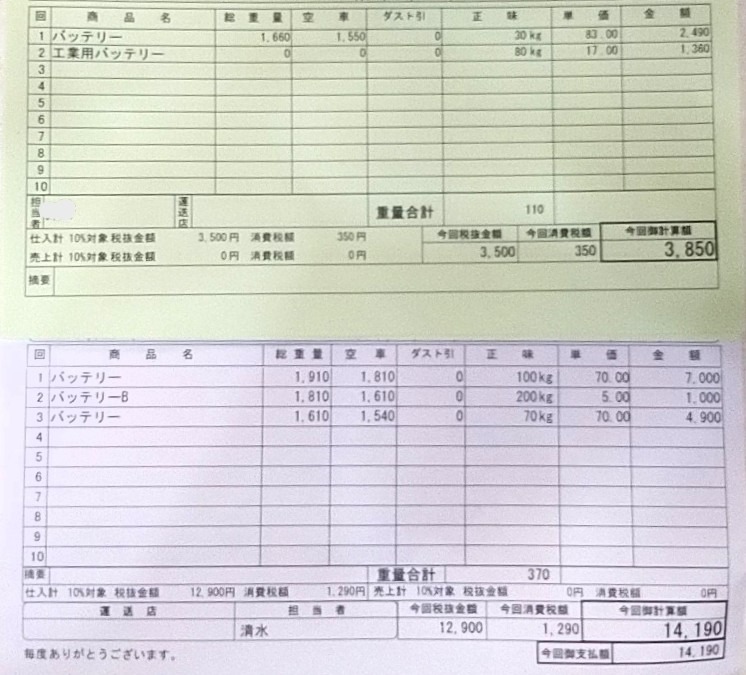 回 商品名 総重量 空車 ダスト引 正味 単価 金額
1 バッテリー 1,660 1,550 0 30kg 83.00 2,490
2 工業用バッテリー 0 0 0 80kg 17.00 1,360
3
4
5
6
7
8
9
10
担当者 運送店 重量合計 110
仕入計 10%対象 税抜金額 3,500円 消費税額 350円 今回税抜金額 今回消費税額 今回御計算額
売上計 10%対象 税抜金額 0円 消費税額 0円 3,500 350 3,850
摘要
回 商品名 総重量 空車 ダスト引 正味 単価 金額
1 バッテリー 1,910 1,810 0 100kg 70.00 7,000
2 バッテリーB 1,810 1,610 0 200kg 5.00 1,000
3 バッテリー 1,610 1,540 0 70kg 70.00 4,900
4
5
6
7
8
9
10
摘要 重量合計 370
仕入計 10%対象 税抜金額 12,900円 消費税額 1,290円 売上計 10%対象 税抜金額 0円 消費税額 0円
運送店 担当者 今回税抜金額 今回消費税額 今回御計算額
清水 12,900 1,290 14,190
毎度ありがとうございます。 今回御支払額 14,190